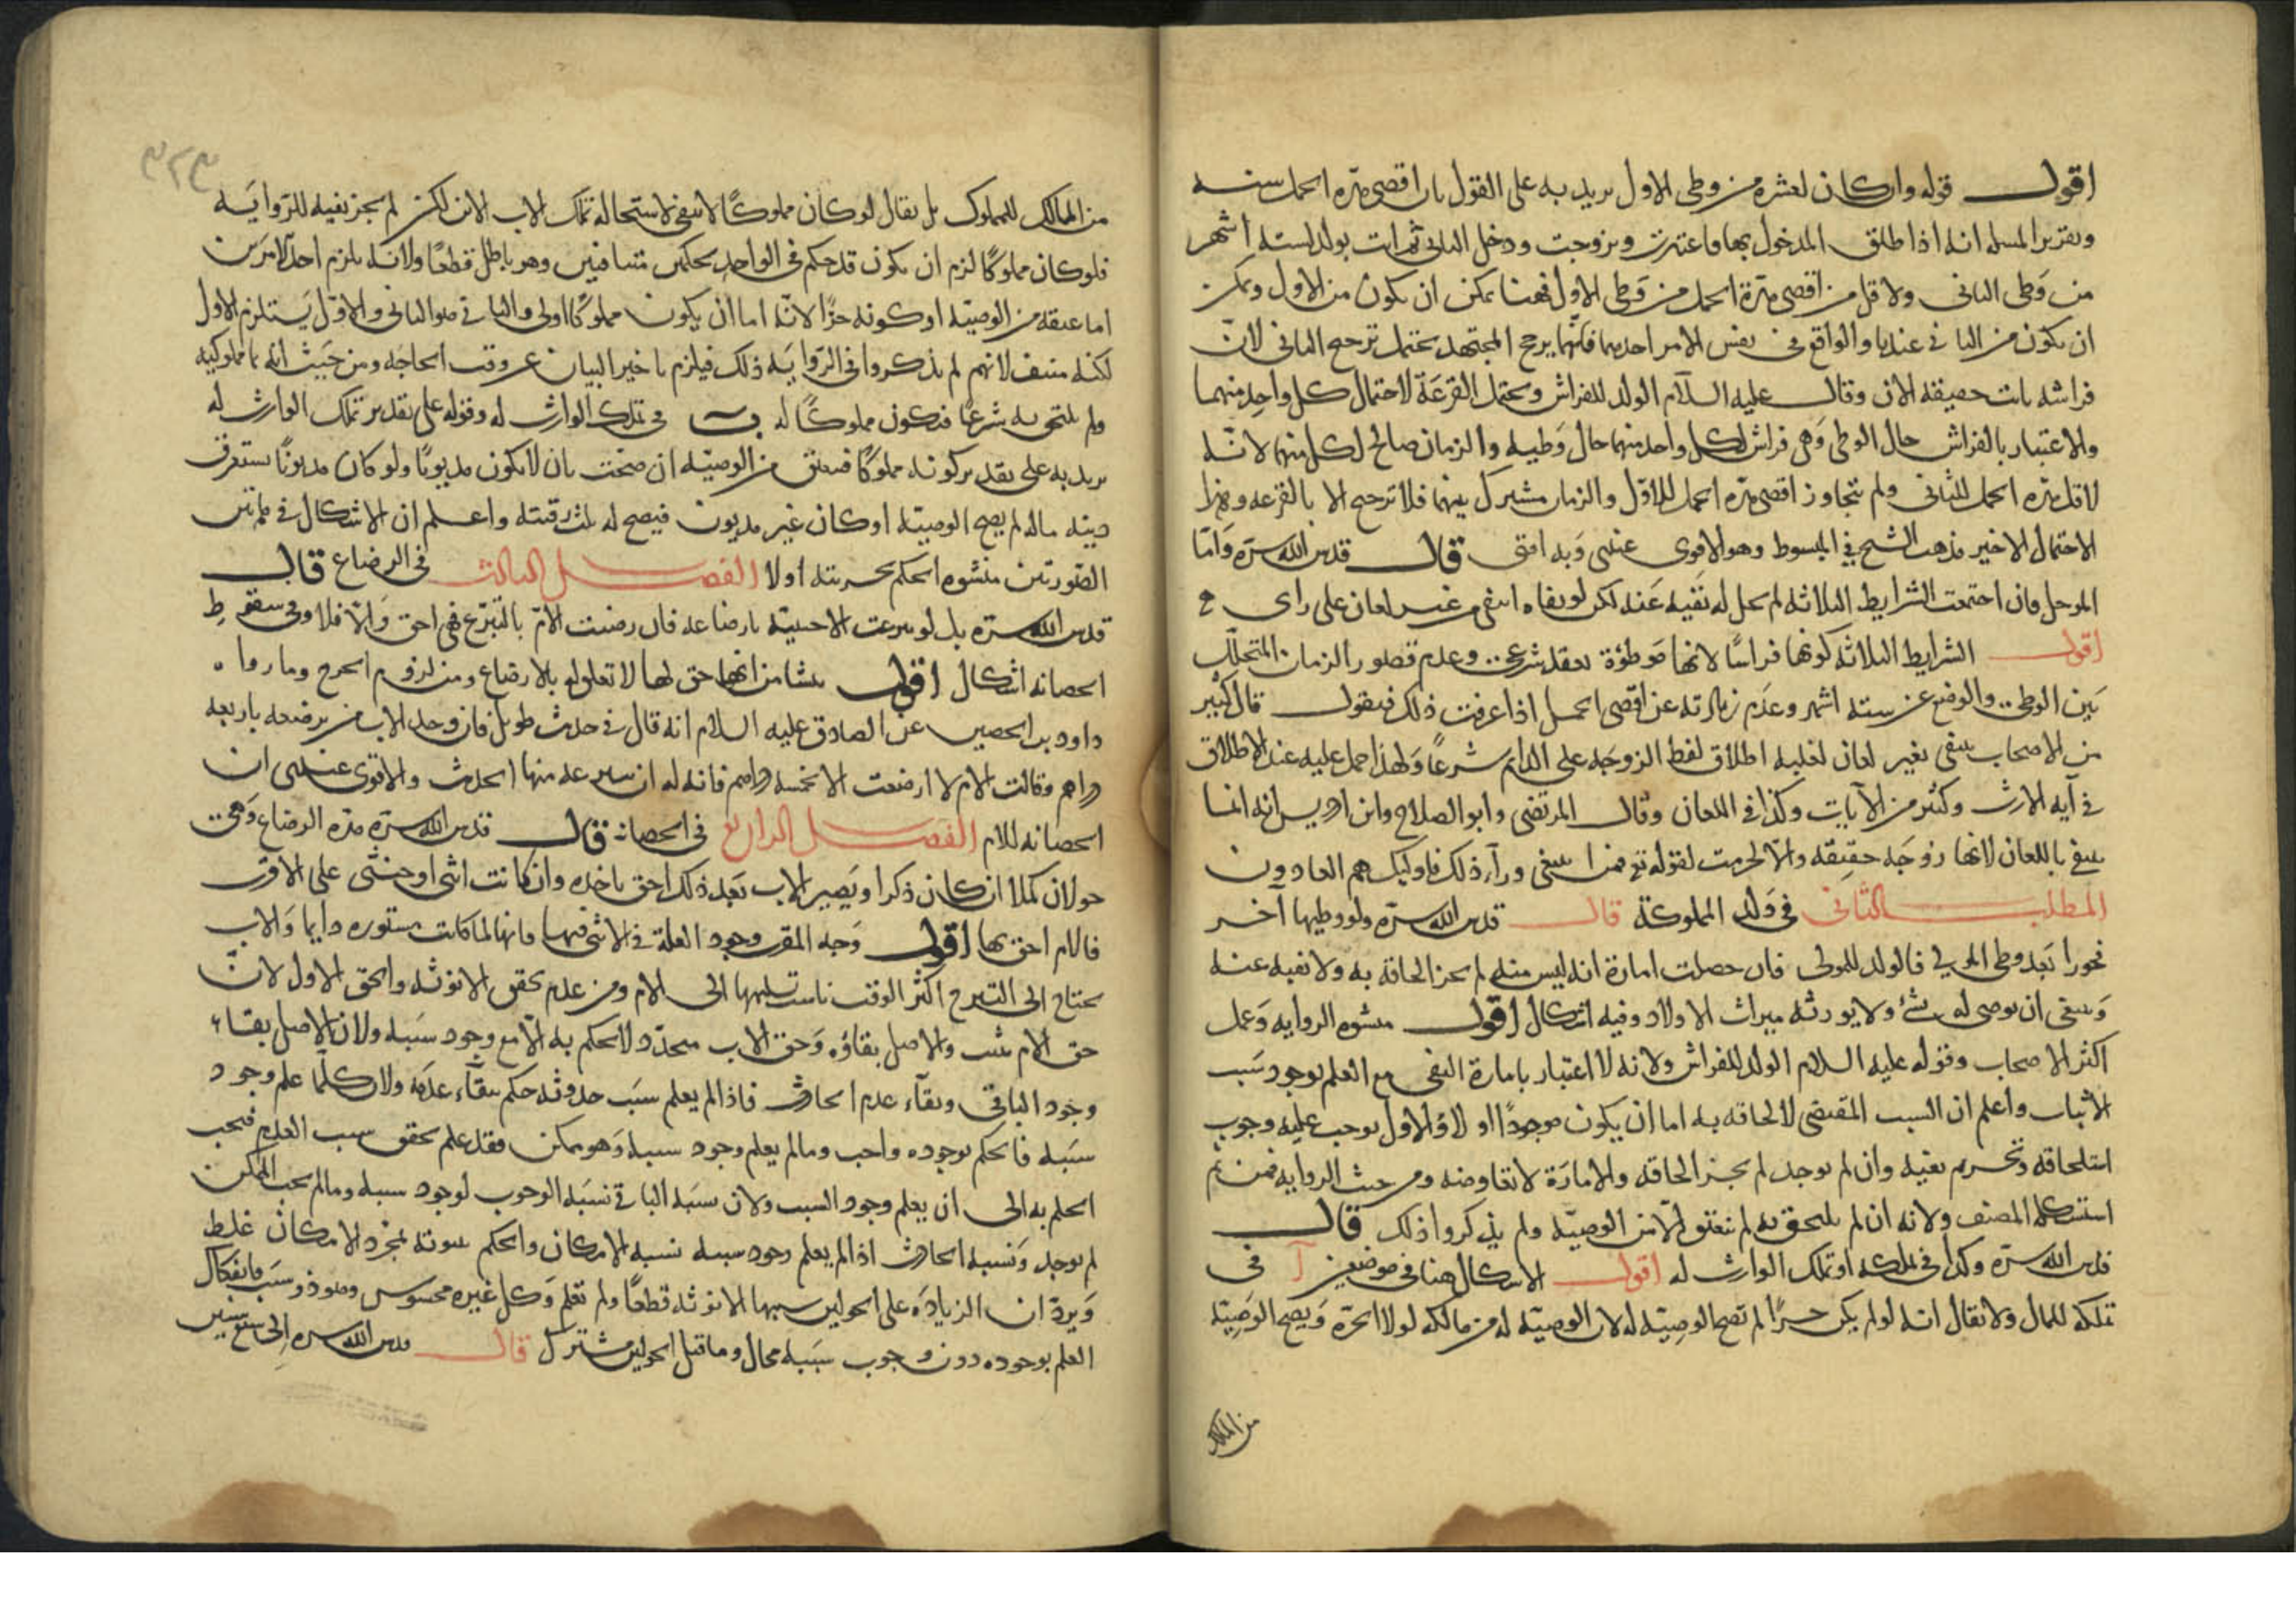 اقول قوله وان كان لعشرة من وطى الاول يريد به على القول بان اقصى مدة الحمل سنه
وتقرير المسله انه اذا طلق المدخول بها فاعتدت وتزوجت ودخل الثانى ثم اتت بولد لسته اشهر
من وَطى الثانى ولاقل من اقصى مدّة الحمل من وَطى الاول فهنا يمكن ان يكون من الاول ويمكن
ان يكون من الثانى عندنا والواقع فى نفس الامر احدهما فايّهما يرجح المجتهد يحتمل ترجيح الثانى لانّ
فراشه ثابت حقيقة الان وقال عليه السلام الولد للفراش ويحتمل القرعَة لاحتمال كل واحدٍ منهما
والاعتبار بالفراش حال الوطى وَهى فراش لكل واحد منهما حال وَطيه والزمان صالح لكل منهما لانّه
لاقل مدّه الحمل للثانى ولم يتجاوز اقصى مدّه الحمل للاوّل والزمان مشترك بينهما فلا ترجيح الا بالقرعه وهذا
الاحتمال الاخير مذهب الشيخ فى المبسوط وهو الاقوى عندى وَبه افتى قال قدس الله سرّه وَامّا
المدخل فان اجتمعت الشرايط الثلاثه لم يحل له نَفيه عَنه لكن لو نفاه انتفى من غير لعان على راى
اقول الشرايط الثلاثه كونها فراشًا لانها مَوطؤة بعقد شرعى وعدم قصور الزمان المتخلّل
بَين الوطى والوضع عن سته اشهر وعَدم زيادته عن اقصى الحمل اذا عرفت ذلك فنقول قال كثير
من الاصحاب ينفى بغير لعان لغلبه اطلاق لفظ الزوجَه على الدايم شرعًا وَلهذا حمل عليه عند الاطلاق
فى آيه الارث وكثير من الآيات وكذا فى اللعان وقال المرتضى وابو الصلاح وابن ادريس انه انما
ينفى باللعان لانها زوجَه حقيقه والّا لحرمت لقوله تع فمن ابتغى ورآء ذلك فاوليك هم العادون
المطلب الثانى فى وَلد المملوكة قال قدس الله سرّه ولو وطيها آخر
فجورا بَعد وطى المولى فالولد للمولى فان حصلت امارة انه ليس منه لم يجز الحاقه به ولا نفيه عنه
وَينبغى ان يوصى له بشئ ولا يورثه ميراث الاولاد وفيه اشكال اقول منشوه الروايه وَعمل
اكثر الاصحاب وقوله عليه السلام الولد للفراش ولانه لا اعتبار بامارة النفى مع العلم بوجود سَبب
الاثبات واعلم ان السبب المقتضى لالحاقه به اما ان يكون موجودًا اولا والاول يوجب عليه وجوب
استلحاقه وتحريم نفيه وان لم يوجد لم يجز الحاقه والامارَة لا تعاوضه ومن حيث الروايه فمن ثم
استشكله المصنف ولانه ان لم يلحق به لم ينعتق الّا من الوصيّه ولم يذكروا ذلك قال
قدس الله سرّه وكذا فى تملكه او تملك الوارث له اقول الاشكال هنا فى موضعين آ فى
تملكه للمال ولا يقال انه لو لم يكن حرًا لم تصح الوصيّه له لان الوصيّه له من مالكه لولا الحرّه وَيصح الوَصِيّه
من المالك
٣٢٣
من المالك للمملوك بل يقال لو كان مملوكًا لانتفى لاستحالة تملك الاب الابن لكن لم يجز نفيه للرّوايَه
فلو كان مملوكًا لزم ان يكون قد حكم فى الواحد بحكمين متنافيين وهو باطل قطعًا ولانه يلزم احد الامرَين
اما عتقه من الوصيّه او كونه حرًا لانّه اما ان يكون مملوكًا اولى والثانى هو الثانى والاوّل يَستلزم الاول
لكنه منتف لانهم لم يذكروا فى الرّوايَه ذلك فيلزم تاخير البيان عن وقت الحاجَه ومن حَيث انه نماء مملوكيه
ولم يلتحق به شرعًا فيكون مملوكًا له ب فى تملك الوارث له وقوله على تقدير تملك الوارث له
يريد به على تقدير كونه مملوكًا فينعتق من الوصيّه ان صحّت بان لا يكون مديونًا ولو كان مديونًا يستغرق
دينه ماله لم يصح الوصيّه او كان غير مديون فيصح له ثلث رقبته واعلم ان الاشكال فى هاتين
الصّورتين منشوه الحكم بحريته اولا الفصل الثالث فى الرضاع قال
قدس الله سرّه بل لو تبرعت الاجنبيّه بارضاعه فان رضيت الامّ بالتبرّع فهى احق وَالّا فلا وفى سقوطِ
الحضانه اشكال اقول ينشا من انها حق لها لا تعلق له بالارضاع ومن لزوم الحرج وما رواه
داود بن الحصين عن الصادق عليه السلام انه قال فى حديث طويل فان وجد الاب من يرضعه باربعه
دراهم وقالت الام لا ارضعت الا بخمسه دراهم فانه له ان ينزعه منها الحديث والاقوى عندى ان
الحضانه للام الفصل الرابع فى الحضانه قال قدس الله سرّه مدّه الرضاع وَهى
حولان كملا ان كان ذكرا ويَصير الاب بَعد ذلك احق باخذه وان كانت انثى او خنثى على الاقرب
فالام احق بها اقول وَجه القرب وجود العلة فى الانثى فيها فانها لما كانت مستوره دايما وَالاب
يحتاج الى التبرج اكثر الوقت ناسب تسليمها الى الام ومن عدم تحقق الانوثه والحق الاول لانّ
حق الام ثبت والاصل بقاؤه وَحق الاب متجدّد لا يحكم به الّا مع وجود سَببه ولان الاصل بقاء
وجود الباقى وبقآء عدم الحادث فاذا لم يعلم سَبب حدوثه حكم ببقآء عدَمه ولان كلّما علم وجود
سَببه فالحكم بوجوده واجب وما لم يعلم وجود سببه وَهو ممكن فقد علم تحقق سبب العدم فيجب
الحكم به الى ان يعلم وجود السبب ولان نسبَه الباقى نسبَه الوجوب لوجود سببه وما لم يجب الممكن
لم يوجد وَنسبه الحادث اذا لم يعلم وجود سببه نسبه الامكان والحكم بثبوته بمجرد الامكان غلط
وَيردّ ان الزيادَه على الحولين سببها الانوثه قطعًا ولم تعلم وَكل غيره محسوس
العلم بوجوده دون وجوب سَببه محال وما قبل الحولين مشترك قال قدس الله سره الى سبع سنين